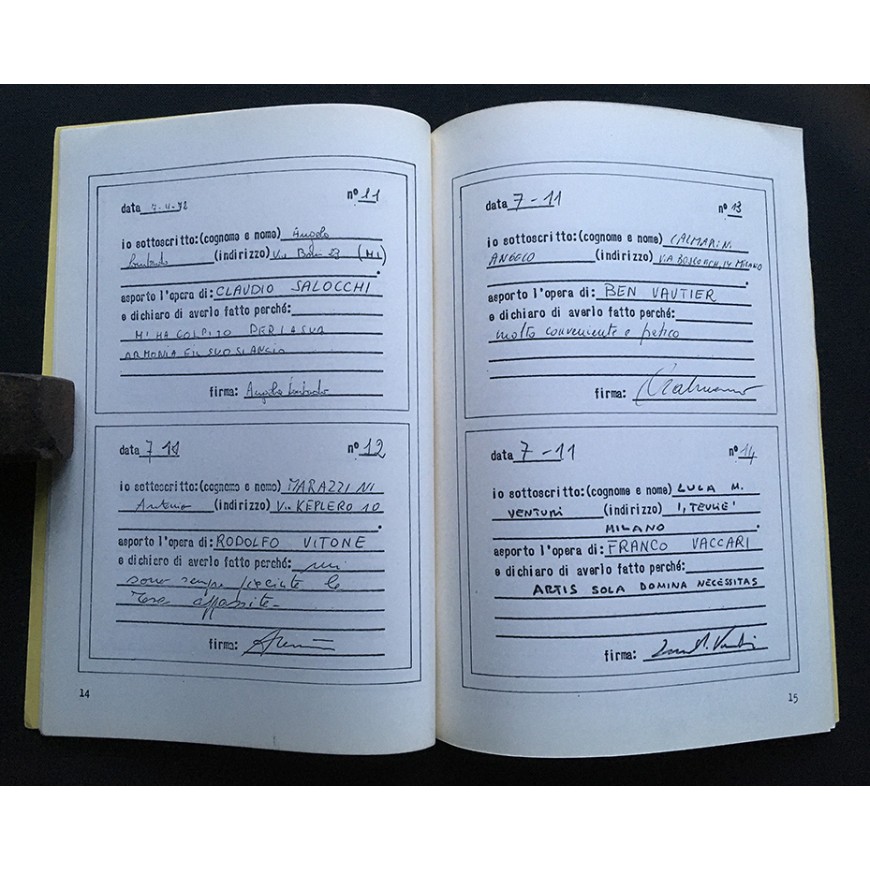 data 7-4-72 nº 11
io sottoscritto:(cognome e nome) Angelo
Lombardo (indirizzo) Via 23 (MI)
.
asporto l'opera di: CLAUDIO SALOCCHI
e dichiaro di averlo fatto perché:
MI HA COLPITO PER LA SUA
ARMONIA E IL SUO SLANCIO
firma: Angelo Lombardo
data 7 11 nº 12
io sottoscritto:(cognome e nome) MARAZZINI
Antonio (indirizzo) Via KEPLERO 10
.
asporto l'opera di: RODOLFO VITONE
e dichiaro di averlo fatto perché: mi
sono sempre piaciute le
rose appassite-
firma:
14
data 7-11 nº 13
io sottoscritto:(cognome e nome) CALMARINI
ANGELO (indirizzo) VIA 14 MILANO
.
asporto l'opera di: BEN VAUTIER
e dichiaro di averlo fatto perché:
molto conveniente e pratico
firma:
data 7-11 nº 14
io sottoscritto:(cognome e nome) LUCA M.
VENTURI (indirizzo) 1, TEULIE'
MILANO .
asporto l'opera di: FRANCO VACCARI
e dichiaro di averlo fatto perché:
ARTIS SOLA DOMINA NECESSITAS
firma: Luca M. Venturi
15